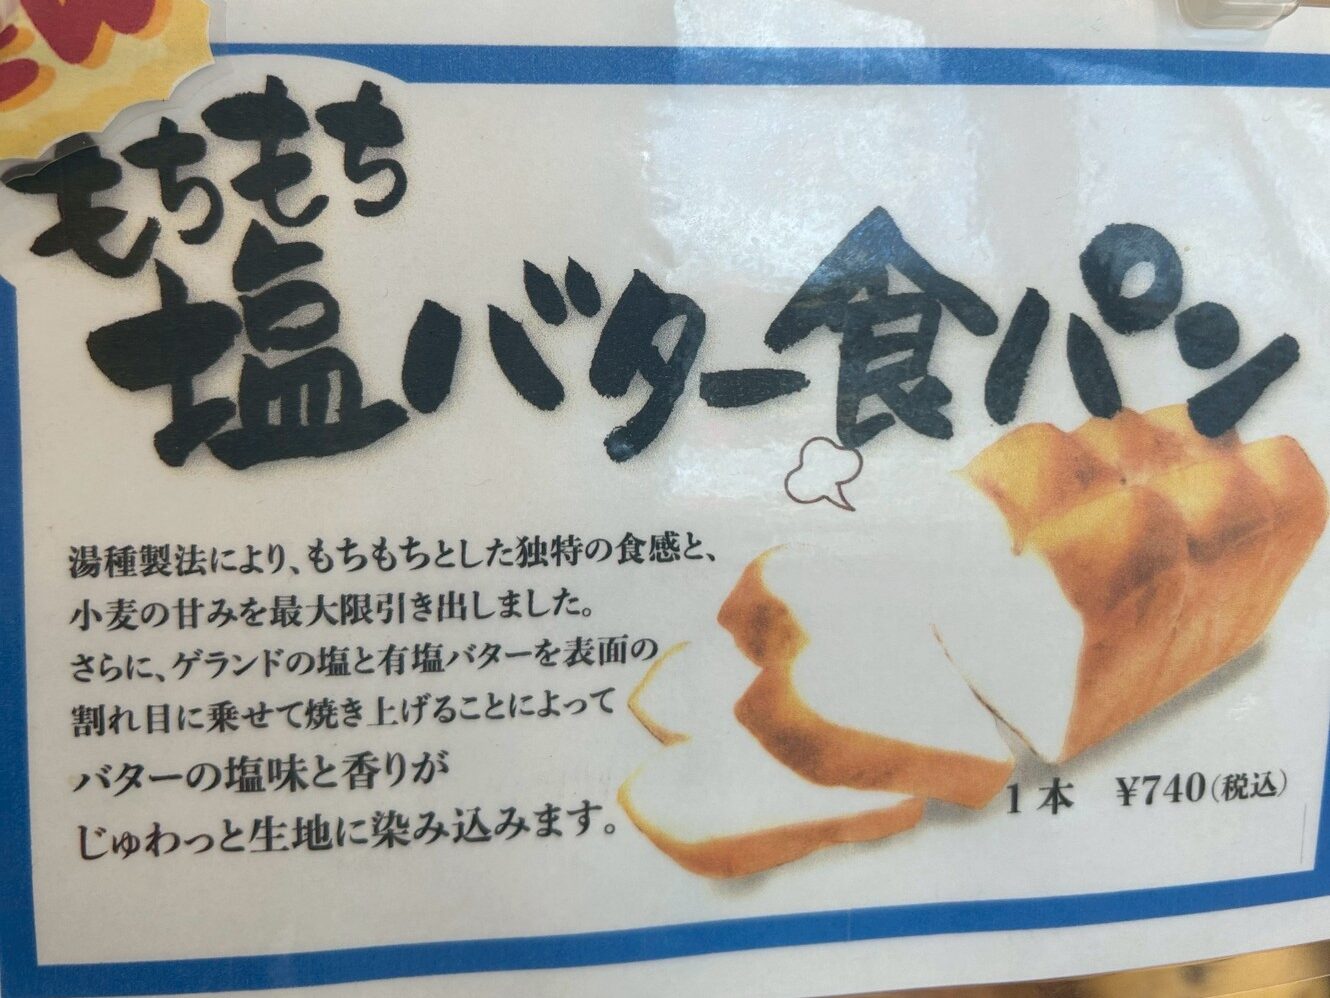 もちもち
塩バター食パン
湯種製法により、もちもちとした独特の食感と、
小麦の甘みを最大限引き出しました。
さらに、ゲランドの塩と有塩バターを表面の
割れ目に乗せて焼き上げることによって
バターの塩味と香りが
じゅわっと生地に染み込みます。
1本 ¥740(税込)